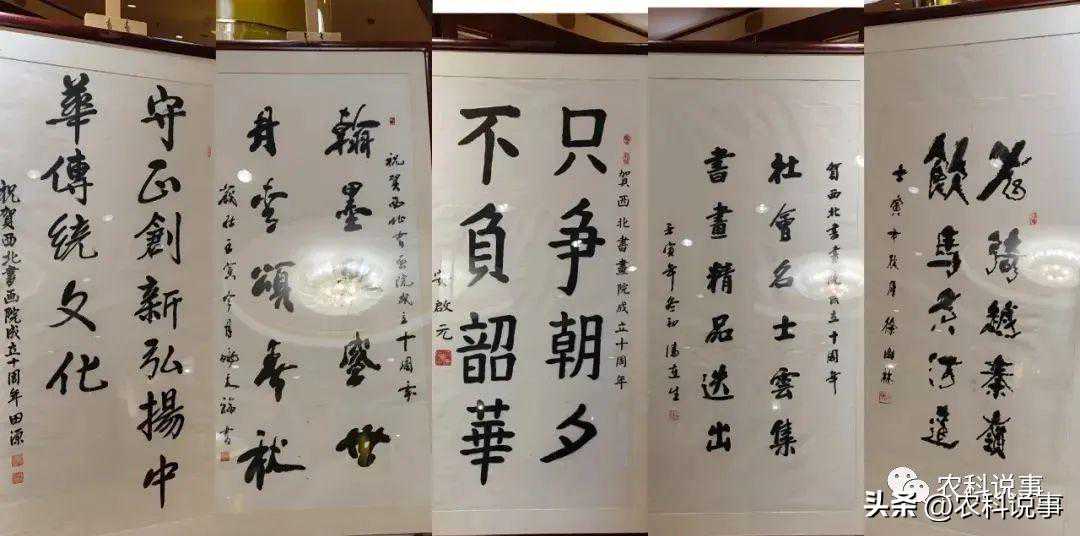 守正創新弘揚中
華傳统文化
祝賀西北書画院成立十周年 田源
祝贺西北书画院成立十周年
翰墨盛世
丹青頌春秋
壬寅
賀西北書畫院成立十周年
只争朝夕
不負韶華
吴啟元
賀西北書畫院成立十周年
社會名士雲集
書畫精品迭出
壬寅年冬初
秦嶺
飲馬
壬寅
農科说事
头条 @农科说事